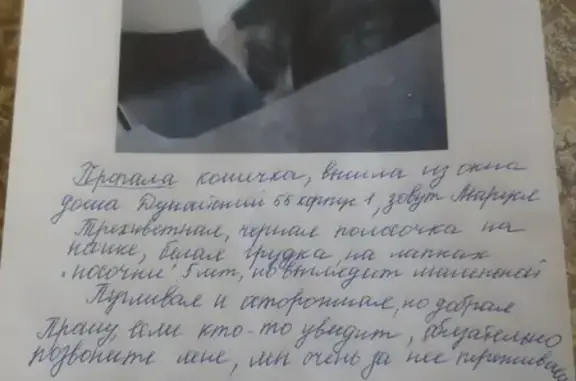 Пропала кошечка, выпала из окна
дома Дунайский 55 корпус 1, зовут Маруся
Трехцветная, черная полосочка на
носике, белая грудка, на лапках
"носочки" 5 лет, но выглядит маленькой
Пугливая и осторожная, но добрая
Прошу, если кто-то увидит, обязательно
позвоните мне, мы очень за нее переживаем